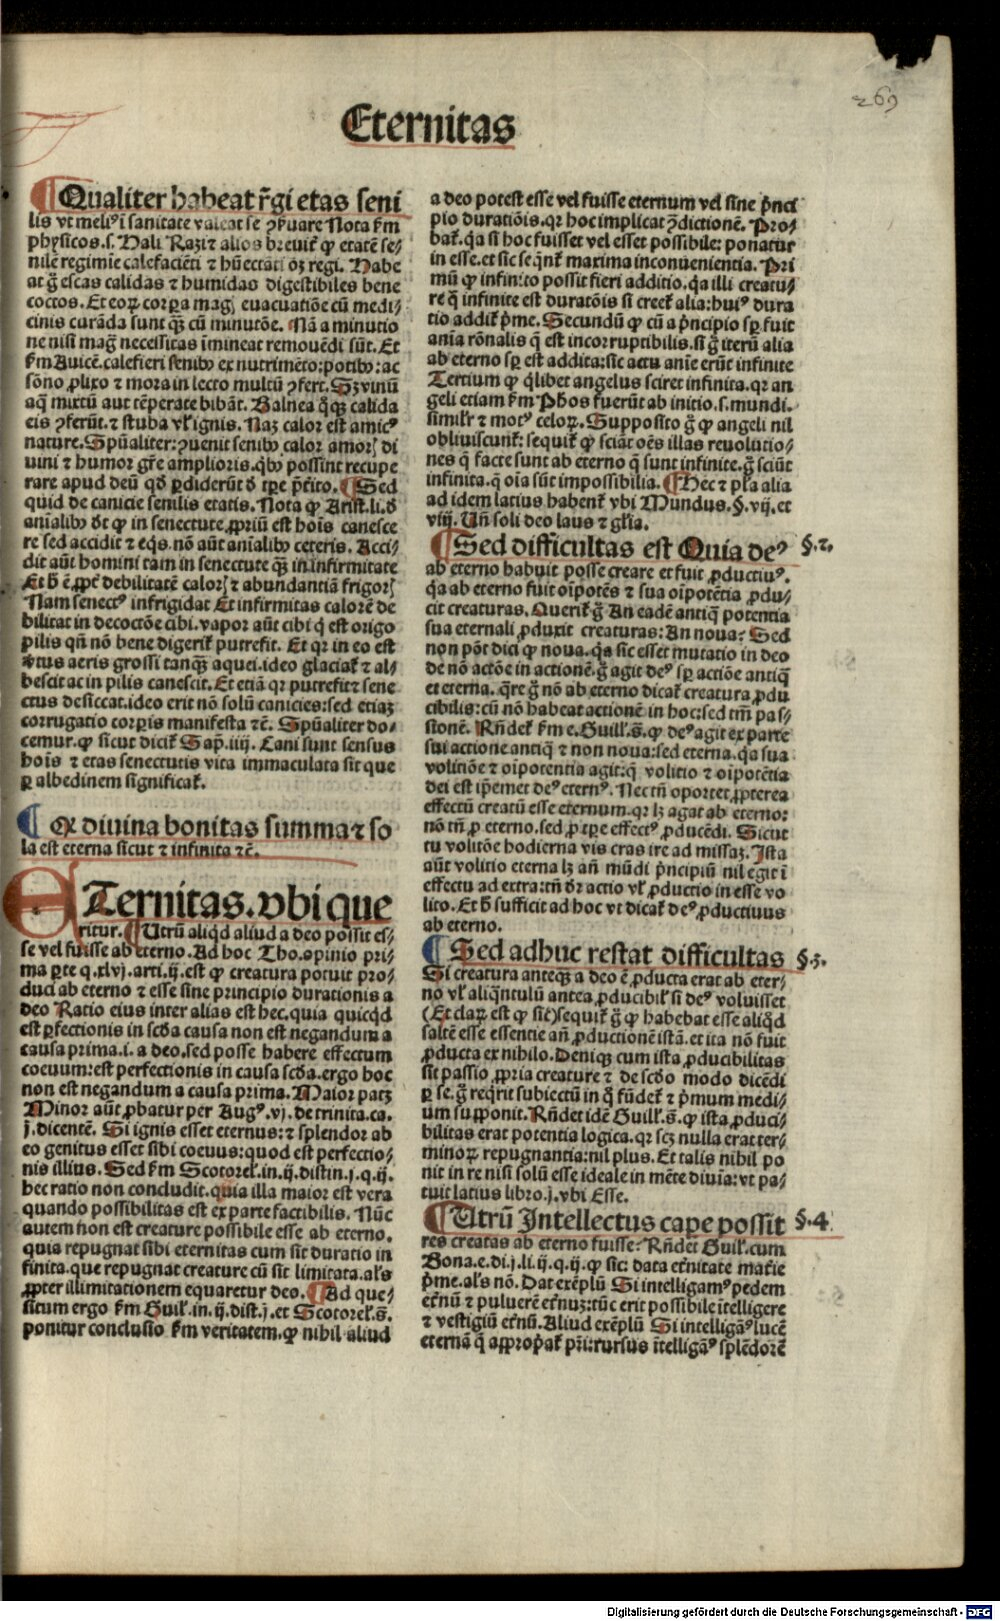 269
Eternitas
¶ Qualiter habeat r̄gi etas seni
lis vt meliꝰ ī sanitate valeat se ꝯẜuare Nota ẜm
phyſicos.ſ. Hali Razi ⁊ alios breuiť ꝙ etatē se⸗
nilē regimīe calefaciēti ⁊ hūectāti oꝫ regi. Habe
at g̃ escas calidas ⁊ humidas digestibiles bene
coctos. Et eoꝝ corꝑa magꝭ euacuatiōe cū medi⸗
cinis curāda sunt qꝫ̄ cū minutōe. Nā a minutio
ne nisi mag̃ necessitas īmineat remouēdi sūt. Et
ẜm Auicē. calefieri senibꝰ ex nutrimēto: potibꝰ: ac
sōno ꝓlixo ⁊ mora in lecto multū ꝯfert. Sꝫ vinū
aq̄ mixtū aut tēperate bibāt. Balnea q̄qꝫ calida
eis ꝯferūt. ⁊ stuba vľ ignis. Naꝫ calor est amicꝰ
nature. Spūaliter: ꝯuenit senibꝰ calor amorꝭ di
uini ⁊ humor gr̄e amplioris. qbꝰ possint recupe
rare apud deū qd̄ ꝑdiderūt d̄ tꝑe p̄t̓ito. ¶ Sed
quid de canicie senilis etatis. Nota ꝙ Arist. li. d̄
anīalibꝰ dt̄ ꝙ in senectute ꝓpriū est hoīs canesce
re sed accidit ⁊ eqꝭ. nō aūt anīalibꝰ ceteris. Acci⸗
dit aūt homini tam in senectute qꝫ̄ in īfirmitate
Et h̄ ē ꝓpť debilitatē calorꝭ ⁊ abundantiā frigorꝭ
Nam senectꝰ infrigidat Et infirmitas calorē de
bilitat in decoctōe cibi. vapor aūt cibi q̄ est origo
pilis qn̄ nō bene digeriť putrefit. Et qꝛ in eo est
v̓tus aeris grossi tanqꝫ̄ aquei. ideo glaciať ⁊ al⸗
bescit ac in pilis canescit. Et etiā qꝛ putrefit ⁊ sene
ctus desiccat. ideo erit nō solū canicies: sed etiaꝫ
corrugatio corꝑis manifesta ⁊c̄. Spūaliter do⸗
cemur. ꝙ sicut diciť Sap̄. iiij. Cani sunt sensus
hoīs ⁊ etas senectutis vita immaculata sit que
ꝑ albedinem significať.
¶ Qꝛ diuina bonitas summa ⁊ so
la est eterna sicut ⁊ infinita ⁊c̄.
ETernitas. vbi que
ritur. ¶ Utrū aliqd̄ aliud a deo possit es⸗
se vel fuisse ab eterno. Ad hoc Tho. opinio pri⸗
ma ꝑte q. xlvj. arti. ij. est ꝙ creatura potuit pro⸗
duci ab eterno ⁊ esse sine principio durationis a
deo Ratio eius inter alias est hec. quia quicqd̄
est ꝑfectionis in scd̄a causa non est negandum a
causa prima. i. a deo. sed posse habere effectum
coeuum: est perfectionis in causa scd̄a. ergo hoc
non est negandum a causa prima. Maior patꝫ
Minor aūt ꝓbatur per Augꝰ. vj. de trinita. ca.
j. dicentē. Si ignis esset eternus: ⁊ splendor ab
eo genitus esset sibi coeuus: quod est perfectio⸗
nis illius. Sed ẜm Scotorel̓. in. ij. distin. j. q. ij.
hec ratio non concludit. quia illa maior est vera
quando possibilitas est ex parte factibilis. Nūc
autem non est creature possibile esse ab eterno.
quia repugnat sibi eternitas cum sit duratio in
finita. que repugnat creature cū sit limitata. al̓s
ꝓpter illimitationem equaretur deo. ¶ Ad que⸗
situm ergo ẜm Guil̓. in. ij. dist. j. et Scotorel̓. s̄.
ponitur conclusio ẜm veritatem. ꝙ nihil aliud
a deo potest esse vel fuisse eternum vel sine p̄nci
pio duratiōis. qꝛ hoc implicat ꝯdictionē. Pro⸗
bať. qa si hoc fuisset vel esset possibile: ponatur
in esse. et sic seq̄nť maxima inconuenientia. Pri
mū ꝙ infinito possit fieri additio. qa illi creatu⸗
re q̄ infinite est duratōis si creeť alia: huiꝰ dura
tio addiť p̄me. Secundū ꝙ cū a p̄ncipio sꝑ fuit
anīa rōnalis q̄ est incorruptibilis. si g̃ iterū alia
ab eterno sꝑ est addita: sic actu anīe erūt infinite
Tertium ꝙ q̄libet angelus sciret infinita. qꝛ an
geli etiam ẜm Ph̄os fuerūt ab initio. ſ. mundi.
simil̓r ⁊ motꝰ celoꝝ. Supposito g̃ ꝙ angeli nil
obliuiscunť: sequiť ꝙ sciāt oēs illas reuolutio⸗
nes q̄ facte sunt ab eterno q̄ sunt infinite. g̃ sciūt
infinita. q̄ oīa sūt impossibilia. ¶ Hec ⁊ pľa alia
ad idem latius habenť vbi Mundus. §. vij. et
viij. Un̄ soli deo laus ⁊ gľia.
¶ Sed difficultas est Quia deꝰ §.2.
ab eterno habuit posse creare et fuit ꝓductiuꝰ.
qa ab eterno fuit oīpotēs ⁊ sua oīpotētia ꝓdu⸗
cit creaturas. Queriť g̃ An eadē antiq̄ potentia
sua eternali ꝓduxit creaturas: An noua? Sed
non pōt dici ꝙ noua. qa sic esset mutatio in deo
de nō actōe in actionē. g̃ agit deꝰ sꝑ actiōe antiq̄
et eterna. q̄re g̃ nō ab eterno dicať creatura ꝓdu
cibilis: cū nō habeat actionē in hoc: sed tm̄ pas⸗
sionē. Rn̄deť ẜm e. Guill̓. s̄. ꝙ deꝰ agit ex parte
sui actione antiq̄ ⁊ non noua: sed eterna. qa sua
volitiōe ⁊ oīpotentia agit: q̄ volitio ⁊ oīpotētia
dei est ip̄emet deꝰ eternꝰ. Nec tn̄ oportet ꝓpterea
effectū creatū esse eternum. qꝛ lꝫ agat ab eterno:
nō tn̄ ꝓ eterno. sed ꝓ tꝑe effectꝰ ꝓducēdi. Sicut
tu volitōe hodierna vis cras ire ad missaꝫ. Ista
aūt volitio eterna lꝫ an̄ mūdi p̄ncipiū nil egit ī
effectu ad extra: tn̄ d̄r actio vľ ꝓductio in esse vo
lito. Et h̄ sufficit ad hoc vt dicať deꝰ ꝓductiuus
ab eterno.
¶ Sed adhuc restat difficultas §.3.
Si creatura anteqꝫ̄ a deo ē ꝓducta erat ab eter⸗
no vľ aliq̄ntulū antea ꝓducibiľ si deꝰ voluisset
(Et claꝝ est ꝙ sic̄) sequiť g̃ ꝙ habebat esse aliqd̄
saltē esse essentie an̄ ꝓductionē istā. et ita nō fuit
ꝓducta ex nihilo. Deniqꝫ cum ista ꝓducibilitas
sit passio ꝓpria creature ⁊ de scd̄o modo dicēdi
ꝑ se. g̃ reqrit subiectū in q̄ fūdeť ⁊ p̄mum medi⸗
um supponit. Rn̄det idē Guill̓. s̄. ꝙ ista ꝓduci⸗
bilitas erat potentia logica. qꝛ scꝫ nulla erat ter⸗
minoꝝ repugnantia: nil plus. Et talis nihil po
nit in re nisi solū esse ideale in mēte diuīa: vt pa⸗
tuit latius libro. j. vbi Esse.
¶ Utrū Intellectus cape possit §.4
res creatas ab eterno fuisse? Rn̄det Guil̓. cum
Bona. e. di. j. li. ij. q. ij. ꝙ sic: data et̓nitate mat̓ie
p̄me. al̓s nō. Dat exēplū Si intelligamꝰ pedem
et̓nū ⁊ puluerē et̓nuꝫ: tūc erit possibile ītelligere
⁊ vestigiū et̓nū. Aliud exēplū Si intelligāꝰ lucē
eternā q̄ appropať pr̄i: rursus ītelligāꝰ splēdorē
Digitalisierung gefördert durch die Deutsche Forschungsgemeinschaft - DFG